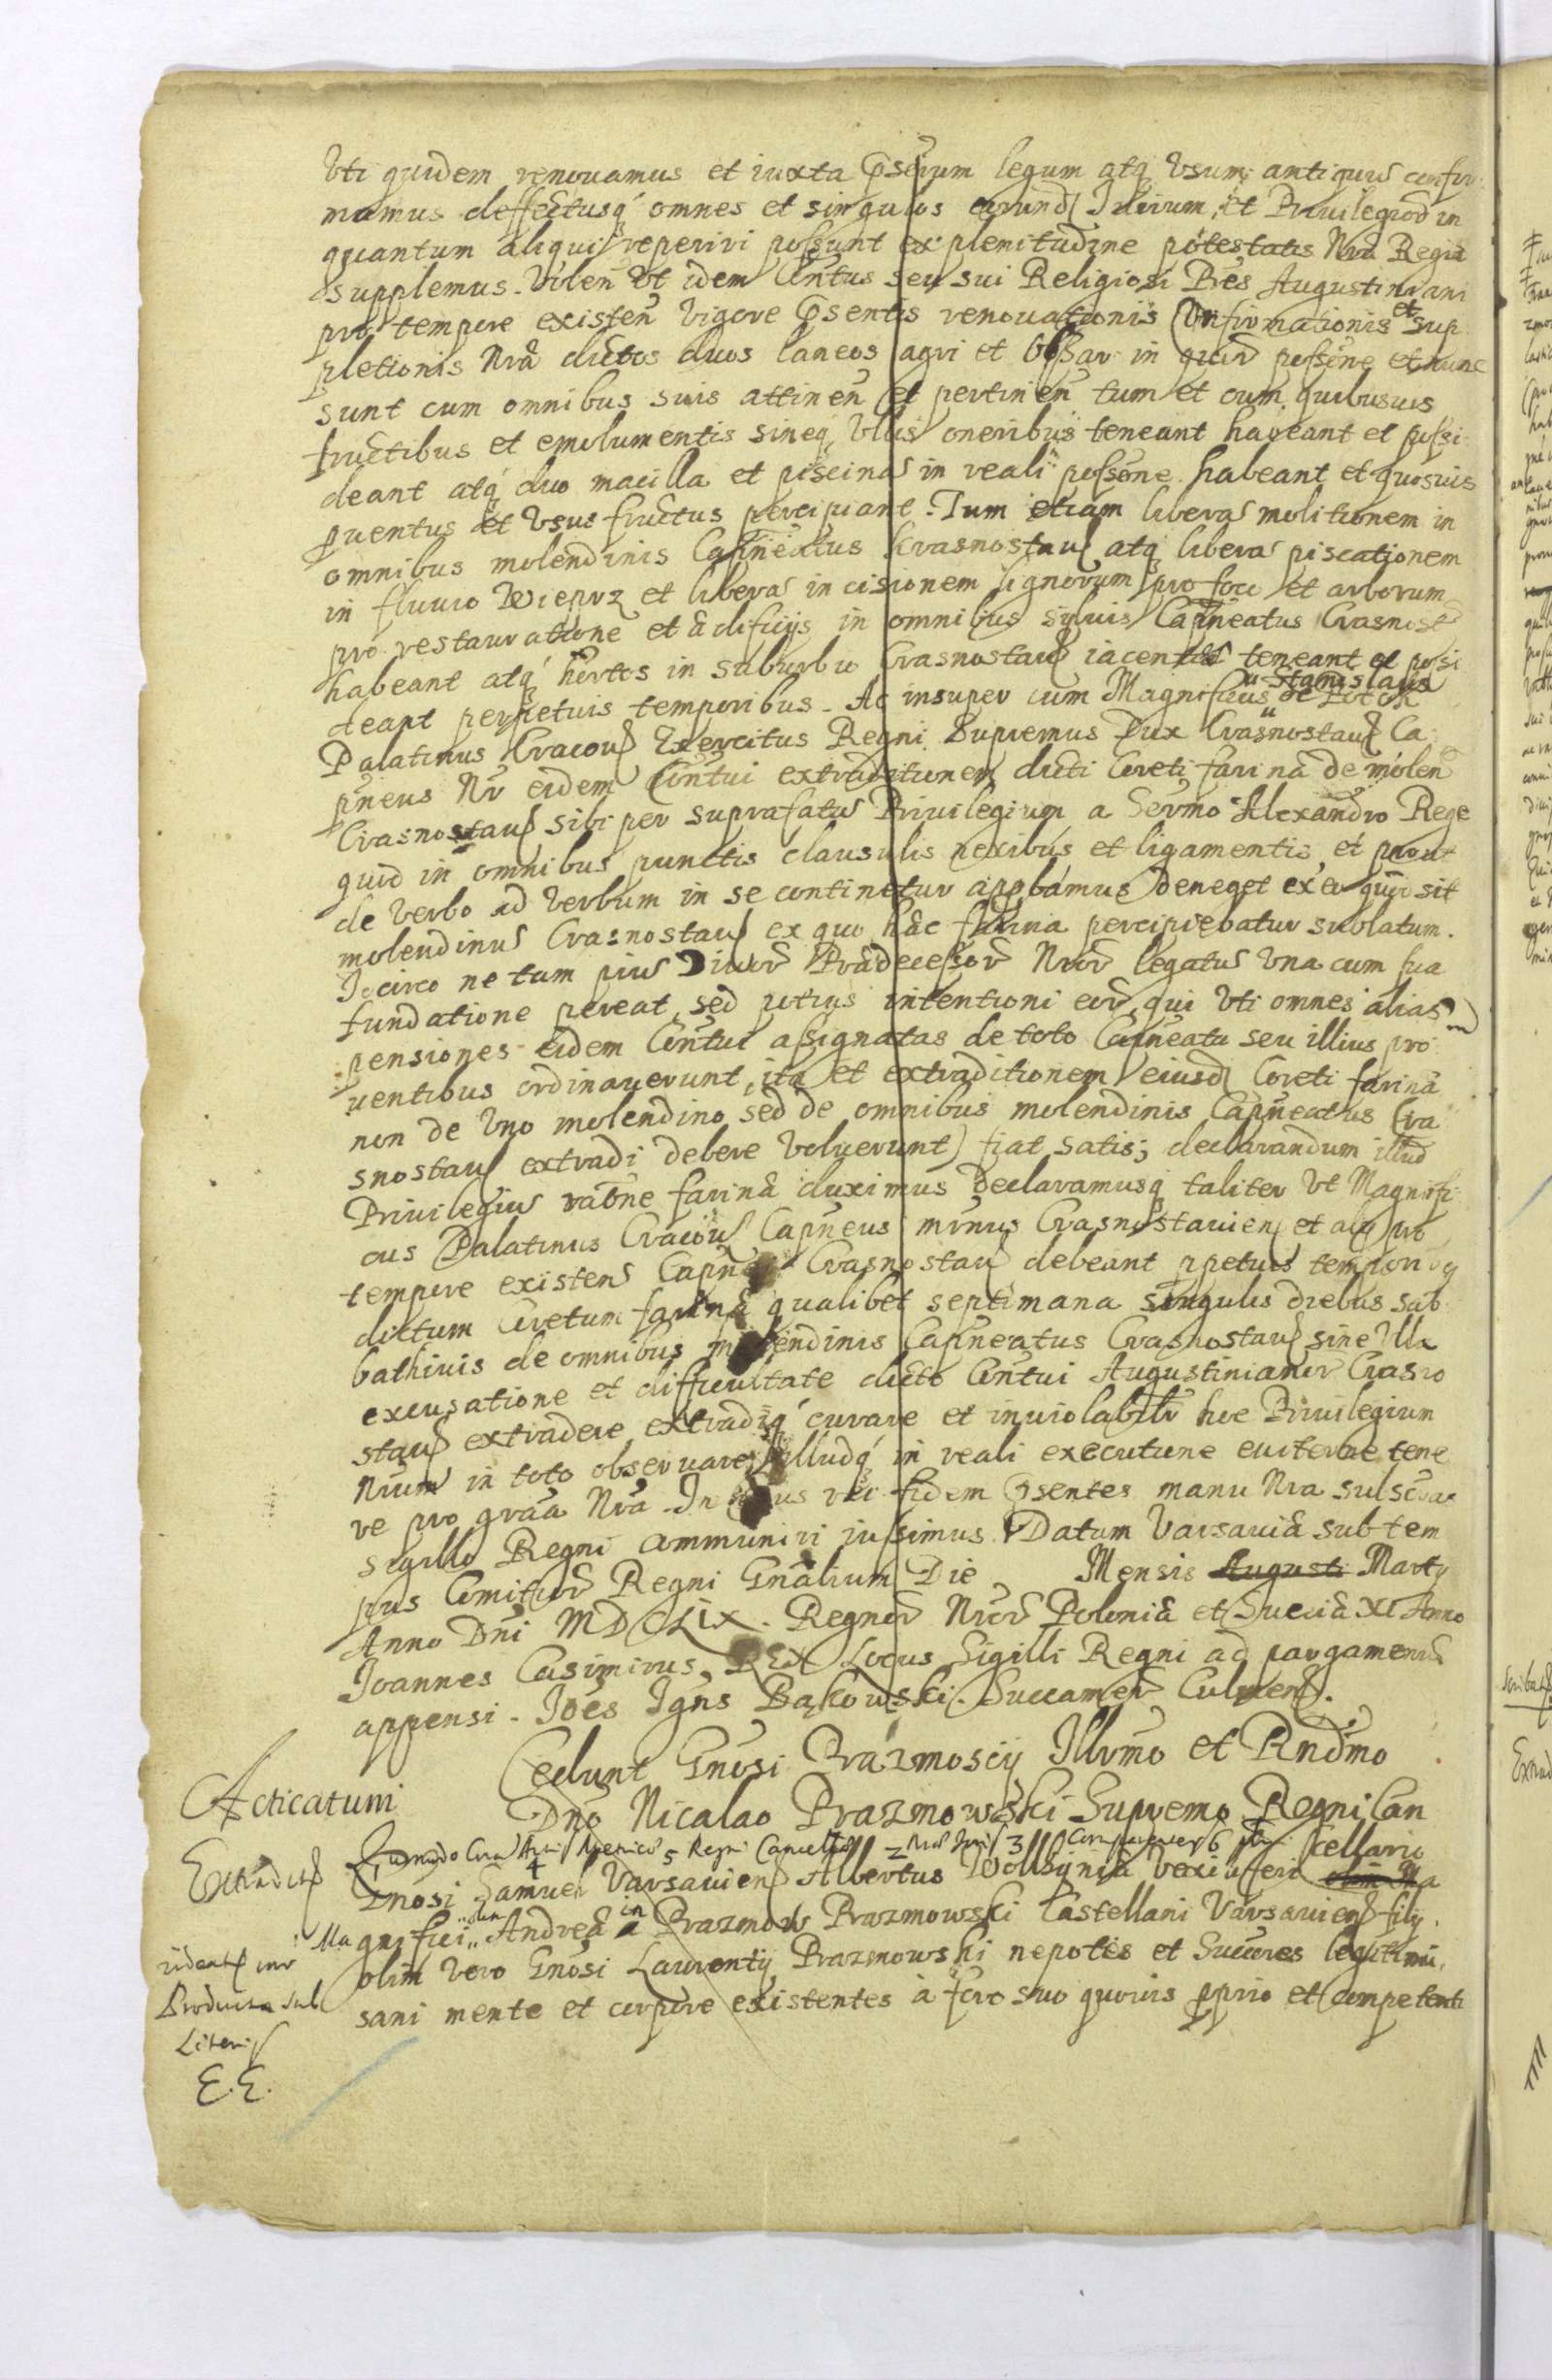 Vti quidem renouamus et iuxta pserium legum atq Vsum antiquu confir
mamus deffectusq omnes et singulos eorund Iurium, et Priuilegiod in
quantum aliqui reperiri possunt ex plenitudine potestatis Nra Regia
supplemus. Volen Vt idem Contus seu sui Religiosi Pres Augustiniani
pro tempore existen Vigore psentis renouationis Confirmationis et sup
pletionis Nra dictos duos laneos agri et in quor possone et nunc
sunt cum omnibus suis attinen et pertinen tum et cum quibusuis
fructibus et emolumentis sineq Vllis oneribus teneant habeant et possi
deant atq duo macilla et piscinas in reali possone habeant et quosuis
puentus et Vsus fructus percipiant. Tum etiam libera molitionem in
omnibus molendinis Capneatus Krasnostau atq libera piscationem
in fluuio Wieprz et libera incisionem lignorum pro foco et arborum
pro restauratione et ædificijs in omnibus syluis Capneatus Crasnost
habeant atq hortos in suburbio Crasnostau iacentes teneant et possi
deant perpetuis temporibus. Ac insuper cum Magnificus Stanislaus de Potok
Palatinus Cracou Exercitus Regni Supremus Dux Crasnostau Ca
pneus Nr eidem Contui extraditionem dicti Coreti farina de molen
Crasnostau sibi per suprafatu Priuilegium a Sermo Alexandro Rege
quod in omnibus punctis clausulis nexibus et ligamentis, et prout
de Verbo ad Verbum in se continetur appbamus deneget ex eo quo sit
molendinu Crasnostau ex quo hæc farina percipiebatur sublatum.
Idcirco ne tam pius Diuor Prædecessor Nror legatus Vna cum sua
fundatione pereat, sed potius intentioni eor, qui Vti omnes alias
pensiones eidem Contui assignatas de toto Capneatu seu illius pro
uentibus ordinauerunt, ita et extraditionem eiusd Coreti farina
non de Vno molendino sed de omnibus molendinis Capneatus Cra
snostau extradi debere Voluerunt) fiat satis; declarandum illud
Priuilegiu raone farina duximus Declaramusq taliter Vt Magnifi
cus Palatinus Cracou Capneus mrnus Crasnostauien et alij pro
tempore existen Capnei Crasnostau debeant ppetuis temporibus
dictum Coretum farina qualibet septimana singulis diebus Sab
bathiuis de omnibus molendinis Capneatus Crasnostau sine Vlla
excusatione et difficultate dicto Contui Augustinianor Crasno
stau extradere extradiq curare et inuiolabilr hoc Priuilegium
Nrum in toto obseruare, illudq in reali executione euiterne tene
re pro graa Nra. In cuius rei fidem psentes manu Nra subscrat
sigillo Regni communiri iussimus. Datum Varsauia sub tem
pus Comitior Regni Gnalium Die Mensis Augusti Marty
Anno Dni MDCLIX. Regnor Nror Polonia et Suecia XI Anno
Ioannes Casimirus REX Locus Sigilli Regni ad pargamenu
appensi. Ioes Igns Bąkowski Succamer Culmen.
Cedunt Gnosi Prazmoscij Illvmo et Rndmo
Acticatum
Dno Nicalao Prazmowski Supremo Regni Can
cellario
Extradit
Gnosi Samuel Varsauien Albertus Wolhynia Vexillferi olim Ma
Magnifici olim Andrea in Prazmow Prazmowski Castellani Varsauien filij
olim Vero Gnosi Laurentij Prazmowski nepotes et Succres legitimi,
Producta sub
sani mente et corpore existentes à foro suo quouis pprio et competenti
Literis
E.E.